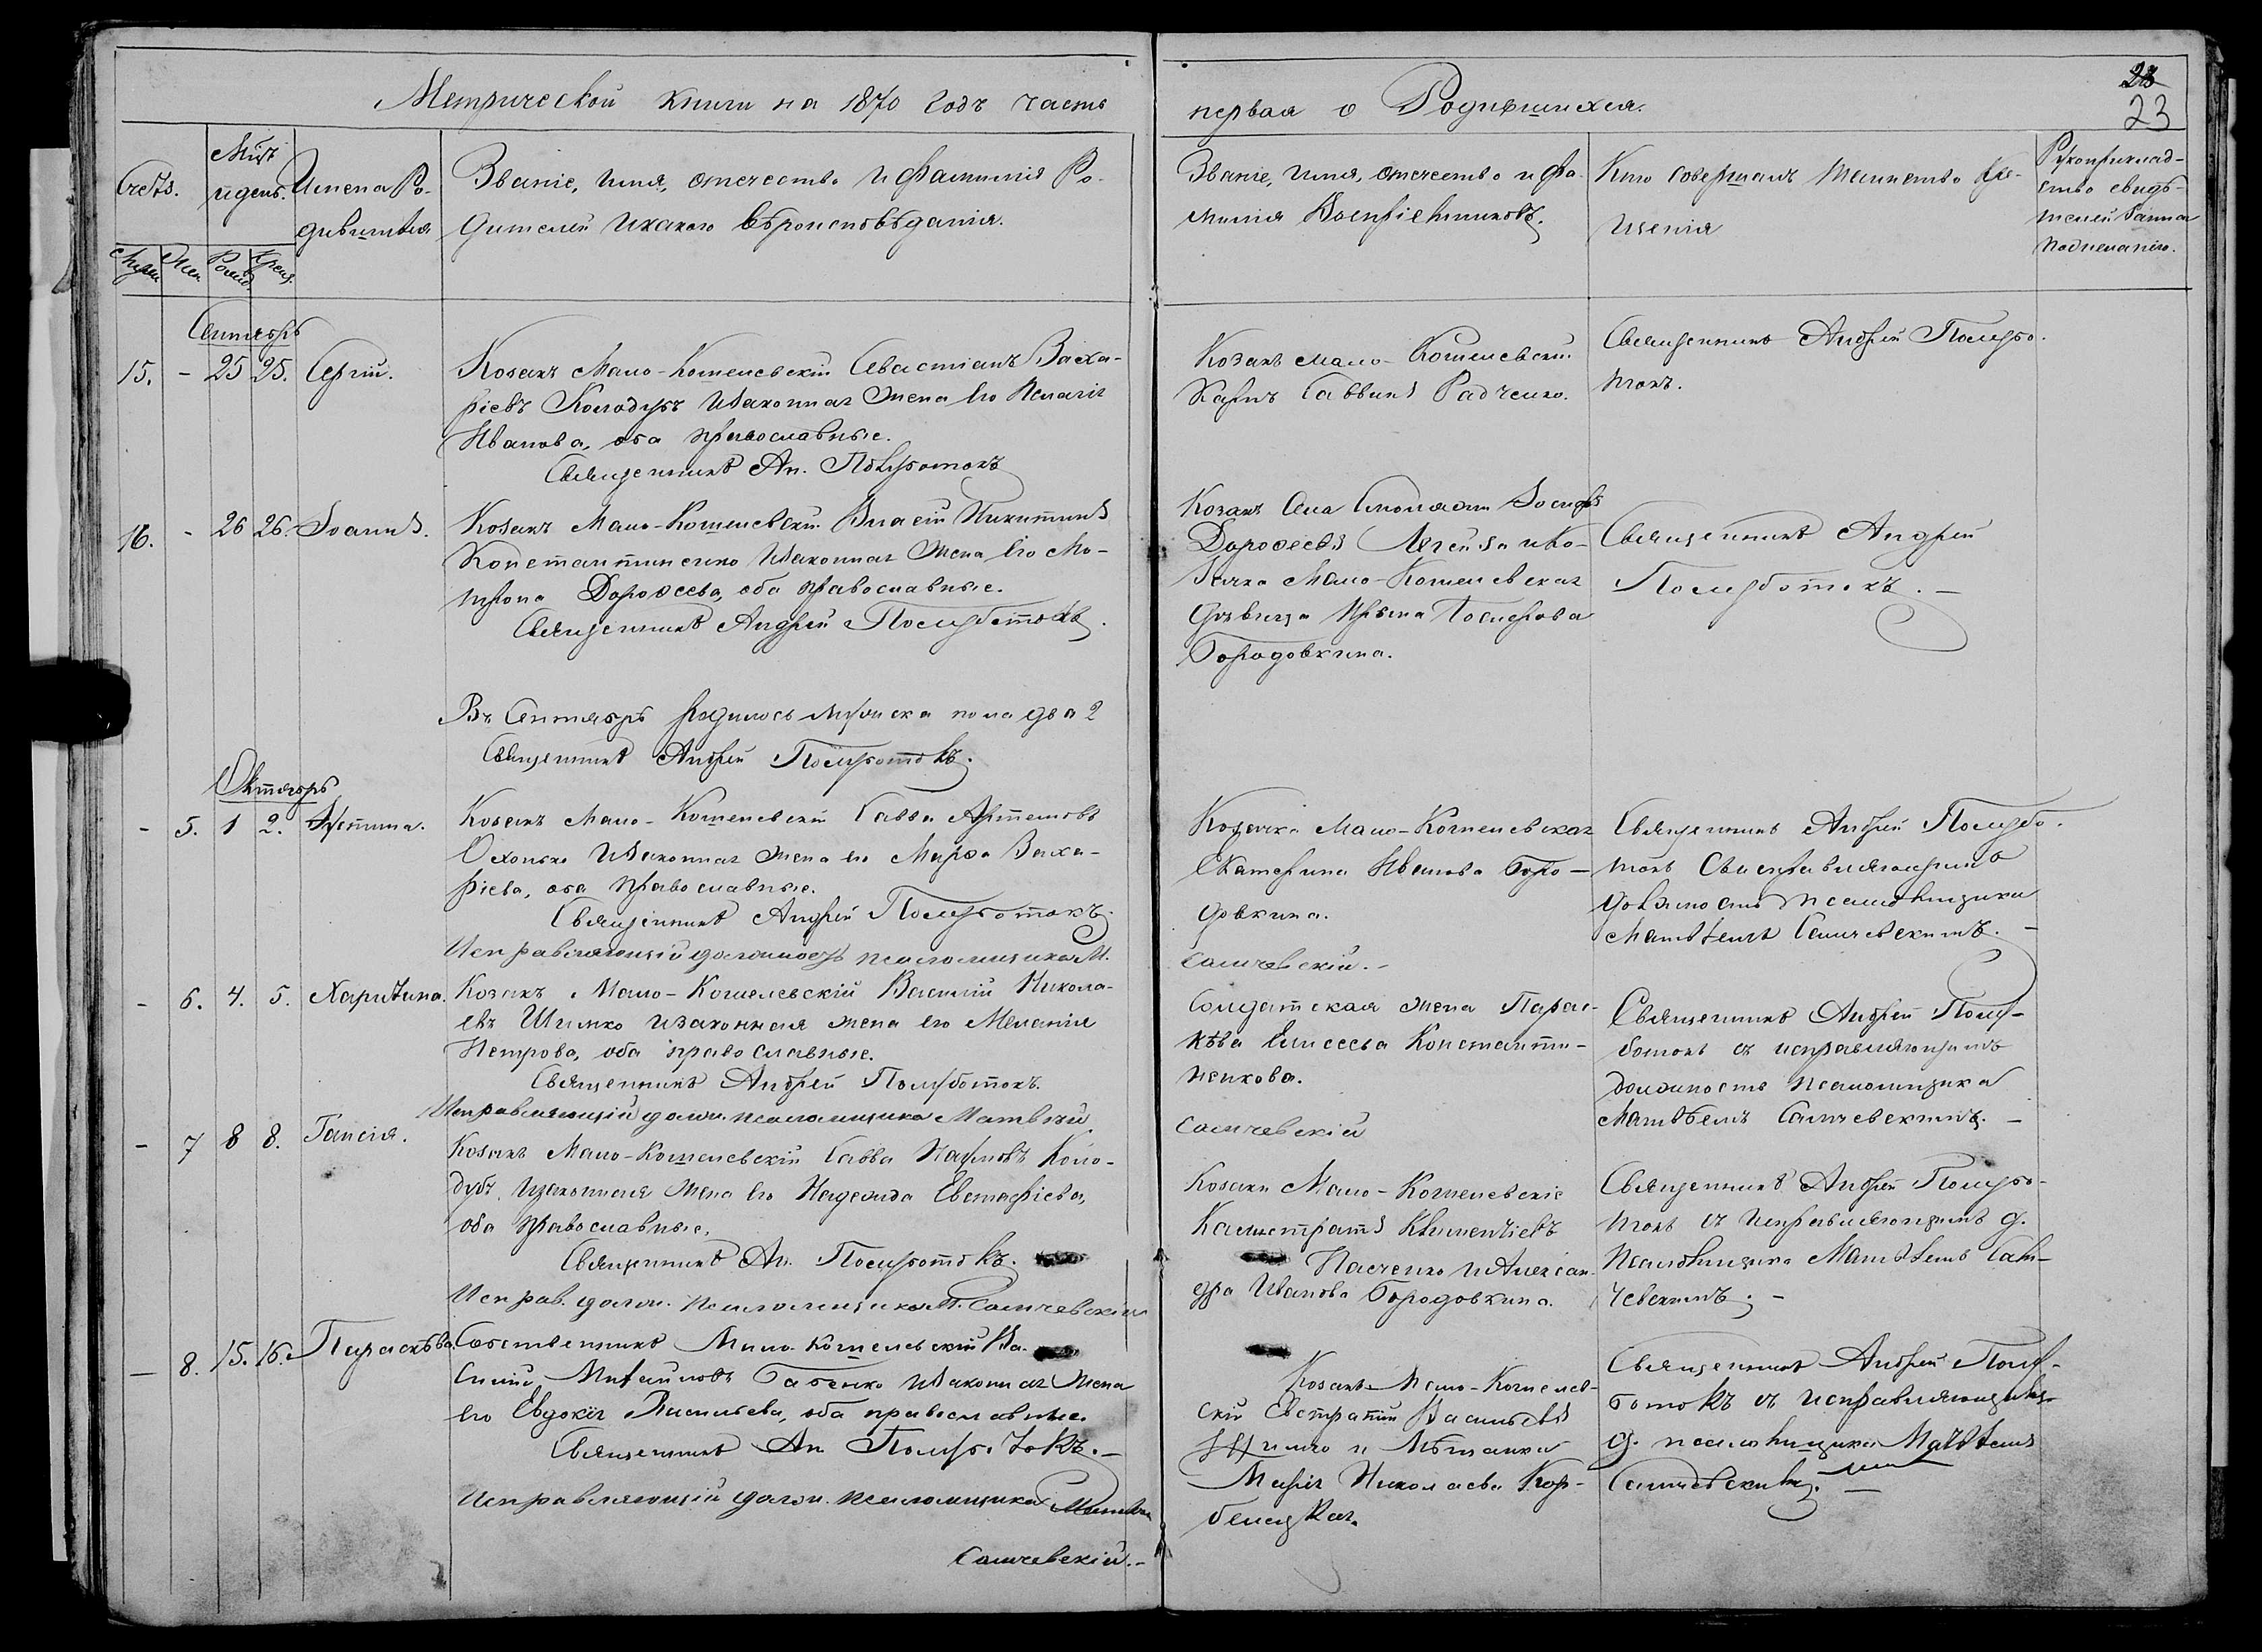 Метрической книги на 1870 годъ часть
первая о Родившихся.
23
Счетъ.
Мѣсъ
и день.
Имена Ро-
дившихся
Званіе, имя, отечество и фамилія Ро-
дителей и какого вѣроисповѣданія.
Званіе, имя, отечество и фа-
милія Воспріемниковъ.
Кто совершалъ таинство кре-
щенія
Рукоприклад-
ство свидѣ-
телей записи
по желанію.
Муж.
Жен.
Рожд.
Крещ.
Сентябрь
15. - 25 25. Сергій.
Козакъ Мало-Кошелевскій Севастіанъ Заха-
ріевъ Колодубъ и законная жена его Пелагія
Иванова, оба православные.
Священникъ Ан. Полуботокъ
Козакъ Мало-Кошелевскій
Карпъ Саввинъ Радченко.
Священникъ Андрей Полубо-
токъ.
16. - 26 26. Іоаннъ.
Козакъ Мало-Кошелевскій Власій Никитинъ
Константиненко и законная жена его Мо-
трона Дороѳеева, оба православные.
Священникъ Андрей Полуботокъ.
Козакъ Села Іосифъ
Дороѳеевъ и Ко-
зачка Мало-Кошелевская
дѣвица Ирина Іосифова
Бородовкина.
Священникъ Андрей
Полуботокъ. -
Въ Сентябрѣ родилось мужска пола два 2
Священникъ Андрей Полуботокъ.
Октябрь
- 5. 1 2. Устина.
Козакъ Мало-Кошелевскій Савва Артемовъ
Осхонько и законная жена его Марѳа Заха-
ріева, оба православные.
Священникъ Андрей Полуботокъ.
Исправляющій должность псаломщика М.
Самчевскій. -
Козачка Мало-Кошелевская
Екатерина Иванова Боро-
довкина.
Священникъ Андрей Полубо-
токъ съ исправляющимъ
должность псаломщика
Матвѣемъ Самчевскимъ. -
- 6. 4. 5. Харитина.
Козакъ Мало-Кошелевскій Василій Никола-
евъ Шимко и законная жена его Меланія
Петрова, оба православные.
Священникъ Андрей Полуботокъ.
Исправляющій долж. псаломщика Матвѣй
Самчевскій
Солдатская жена Парас-
кѣва Елисеева Константи-
ненкова.
Священникъ Андрей Полу-
ботокъ съ исправляющимъ
должность псаломщика
Матвѣемъ Самчевскимъ. -
- 7 8 8. Таисія.
Козакъ Мало-Кошелевскій Савва Наумовъ Коло-
дубъ и законная жена его Надежда Евстафіева,
оба православные.
Священникъ Ан. Полуботокъ.
Исправ. долж. псаломщика М. Самчевскій
Козаки Мало-Кошелевскіе
Калистратъ Климентіевъ
Пасченко и Алексан-
дра Иванова Бородовкина.
Священникъ Андрей Полубо-
токъ съ исправляющимъ д.
псаломщика Матвѣемъ Сам-
чевскимъ. -
- 8. 15. 16. Параскѣва.
Собственникъ Мало-Кошелевскій Ва-
силій Михайловъ Бабенко и законная жена
его Евдокія Васильева, оба православные.
Священникъ Ан. Полуботокъ. -
Исправляющій долж. псаломщика Матвѣй
Самчевскій. -
Козакъ Мало-Кошелев-
скій Евстратій Васильевъ
Шимко и Мѣщанка
Марія Николаева Кор-
бецкая.
Священникъ Андрей Полу-
ботокъ съ исправляющимъ
д. псаломщика Матвѣемъ
Самчевскимъ. -